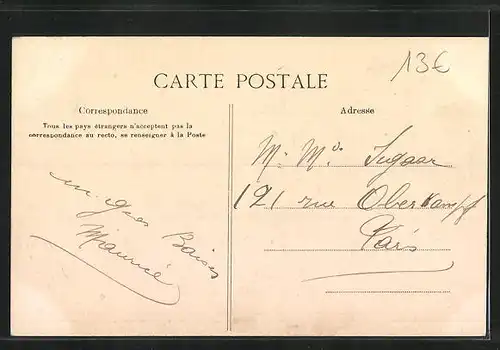 13€
CARTE POSTALE
Correspondance
Tous les pays étrangers n'acceptent pas la
correspondance au recto, se renseigner à la Poste
gros Baisers
Maurice
Adresse
121 rue Oberkampf
Paris